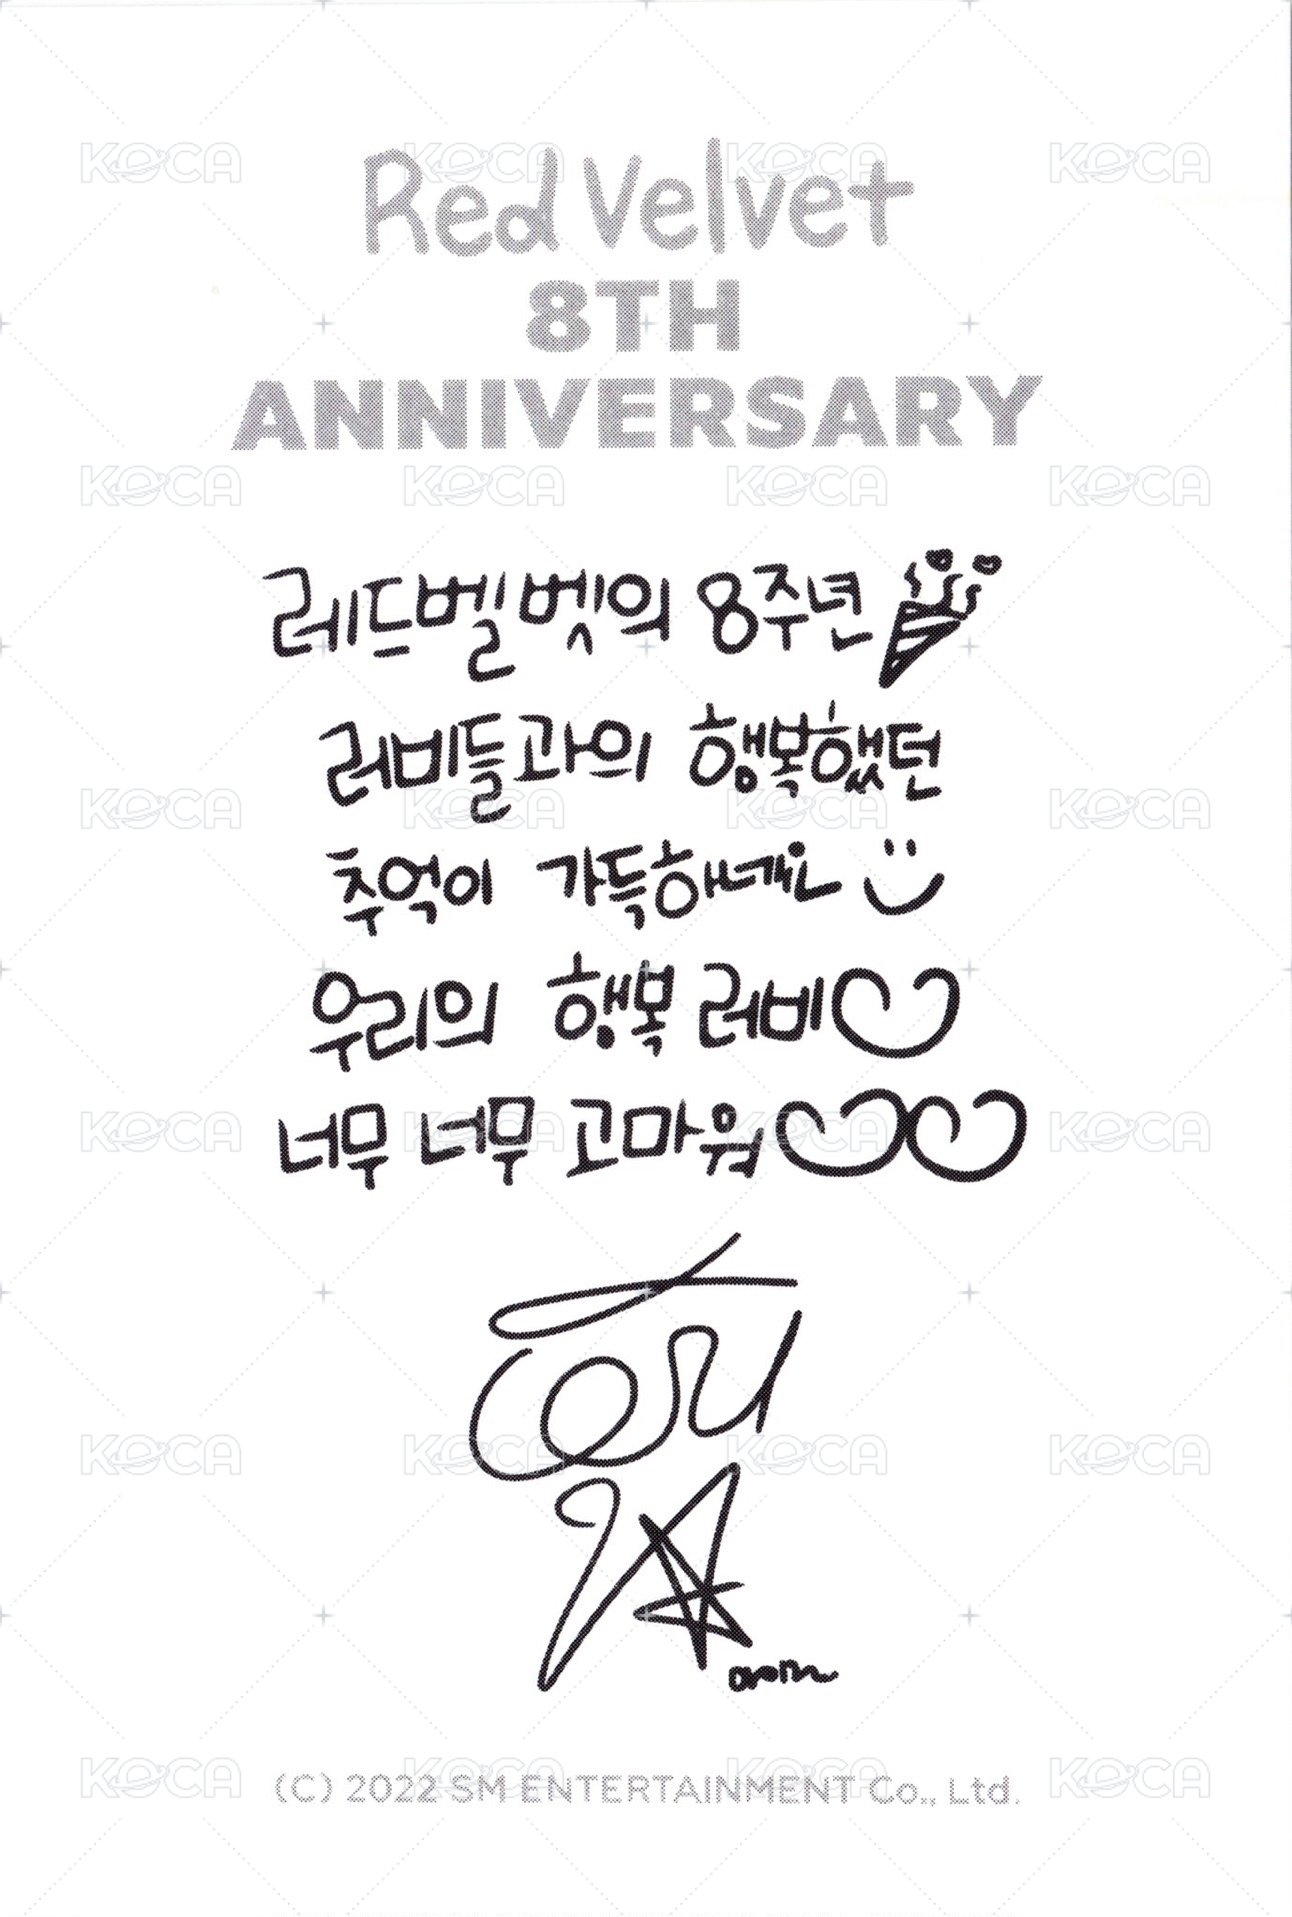 Red Velvet
8TH
ANNIVERSARY
레드벨벳의 8주년
러비들과의 행복했던
추억이 가득하네 :)
우리의 행복 러비♡
너무 너무 고마워♡♡
(C) 2022 SM ENTERTAINMENT Co., Ltd.
KOCA